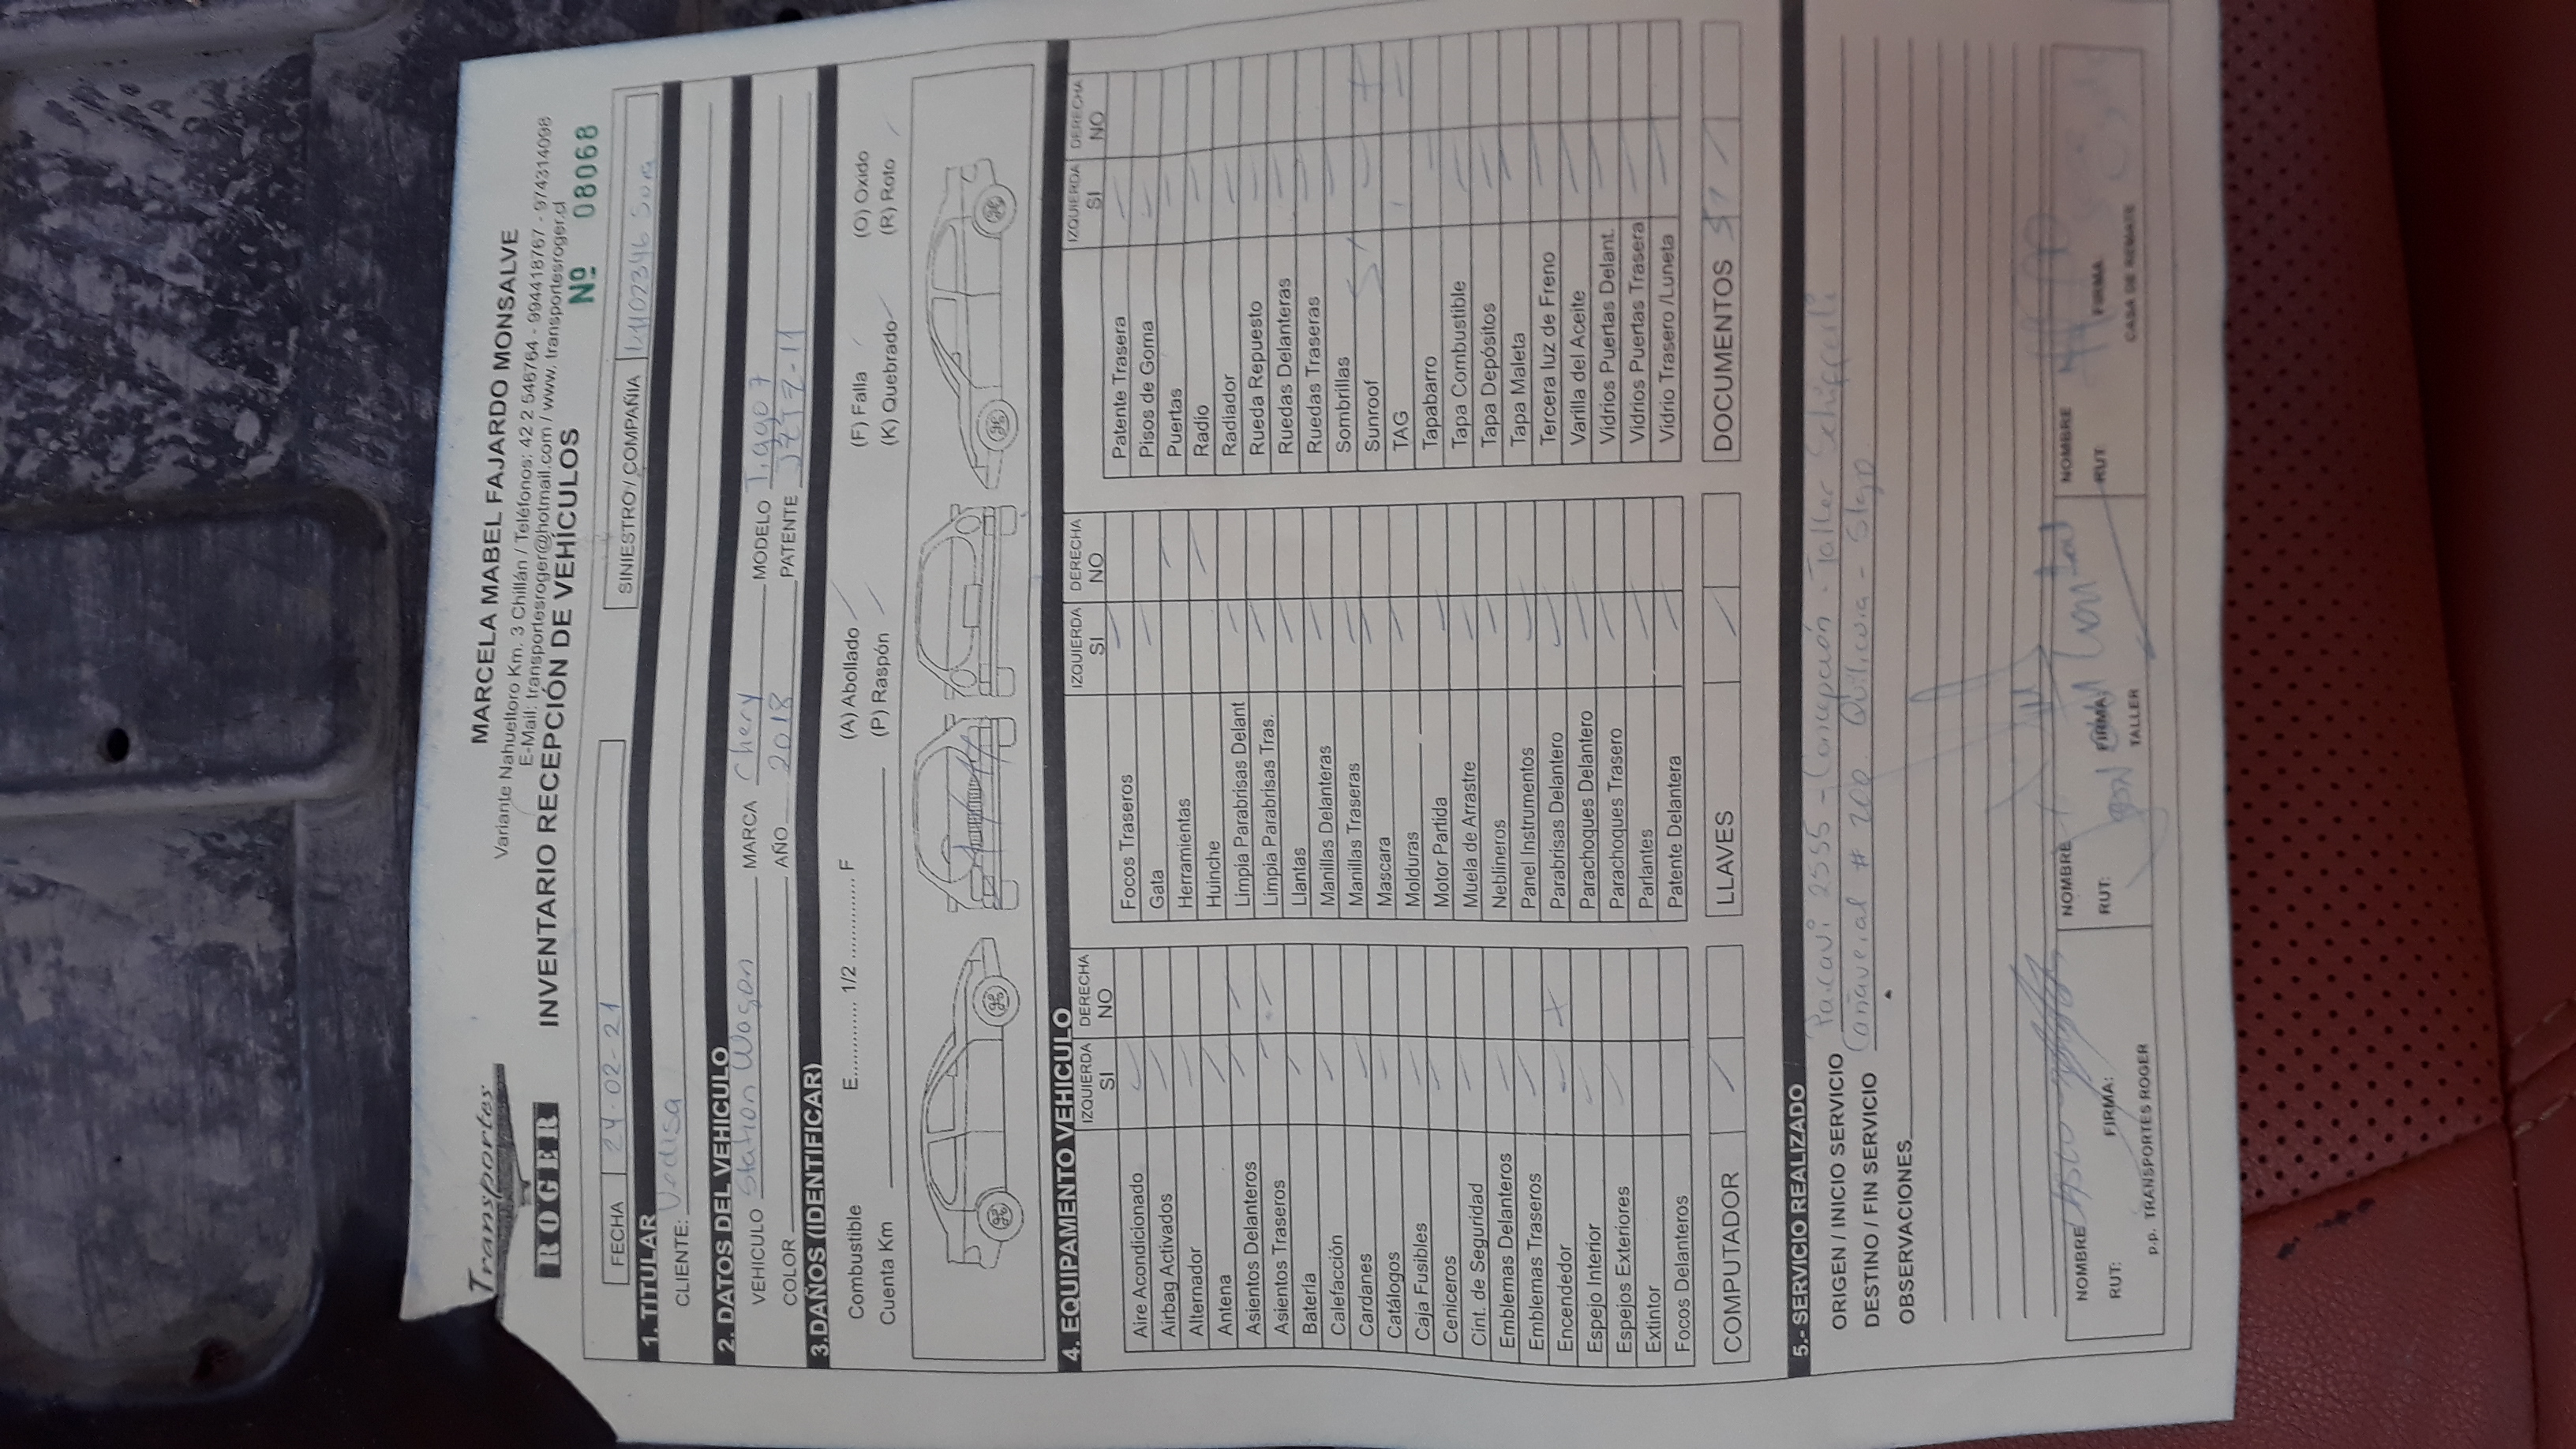 Transportes
ROGER
MARCELA MABEL FAJARDO MONSALVE
Variante Nahueltoro Km. 3 Chillán / Teléfonos: 42 2 546764 - 994418767 - 974314098
E-Mail: transportesroger@hotmail.com / www.transportesroger.cl
INVENTARIO RECEPCIÓN DE VEHÍCULOS
Nº 08068
FECHA 24-02-21
SINIESTRO / COMPAÑIA
1. TITULAR
CLIENTE: Vedisa
2. DATOS DEL VEHICULO
VEHICULO Station Wagon MARCA Chery MODELO Tiggo 7
COLOR AÑO 2018 PATENTE
3.DAÑOS (IDENTIFICAR)
Combustible E............ 1/2 ............... F (A) Abollado (F) Falla (O) Oxido
Cuenta Km (P) Raspón (K) Quebrado (R) Roto
4. EQUIPAMENTO VEHICULO
IZQUIERDA DERECHA
SI NO
Aire Acondicionado
Airbag Activados
Alternador
Antena
Asientos Delanteros
Asientos Traseros
Batería
Calefacción
Cardanes
Catálogos
Caja Fusibles
Ceniceros
Cint. de Seguridad
Emblemas Delanteros
Emblemas Traseros
Encendedor
Espejo Interior
Espejos Exteriores
Extintor
Focos Delanteros
IZQUIERDA DERECHA
SI NO
Focos Traseros
Gata
Herramientas
Huinche
Limpia Parabrisas Delant
Limpia Parabrisas Tras.
Llantas
Manillas Delanteras
Manillas Traseras
Mascara
Molduras
Motor Partida
Muela de Arrastre
Neblineros
Panel Instrumentos
Parabrisas Delantero
Parachoques Delantero
Parachoques Trasero
Parlantes
Patente Delantera
IZQUIERDA DERECHA
SI NO
Patente Trasera
Pisos de Goma
Puertas
Radio
Radiador
Rueda Repuesto
Ruedas Delanteras
Ruedas Traseras
Sombrillas
Sunroof
TAG
Tapabarro
Tapa Combustible
Tapa Depósitos
Tapa Maleta
Tercera luz de Freno
Varilla del Aceite
Vidrios Puertas Delant.
Vidrios Puertas Trasera
Vidrio Trasero /Luneta
COMPUTADOR
LLAVES
DOCUMENTOS
5.- SERVICIO REALIZADO
ORIGEN / INICIO SERVICIO Paicavi 2555 - Concepción - Taller
DESTINO / FIN SERVICIO Cañaveral # 200 Quilicura - Stgo
OBSERVACIONES
NOMBRE
RUT: FIRMA:
p.p. TRANSPORTES ROGER
NOMBRE
RUT: FIRMA
TALLER
NOMBRE
RUT: FIRMA
CASA DE REMATE